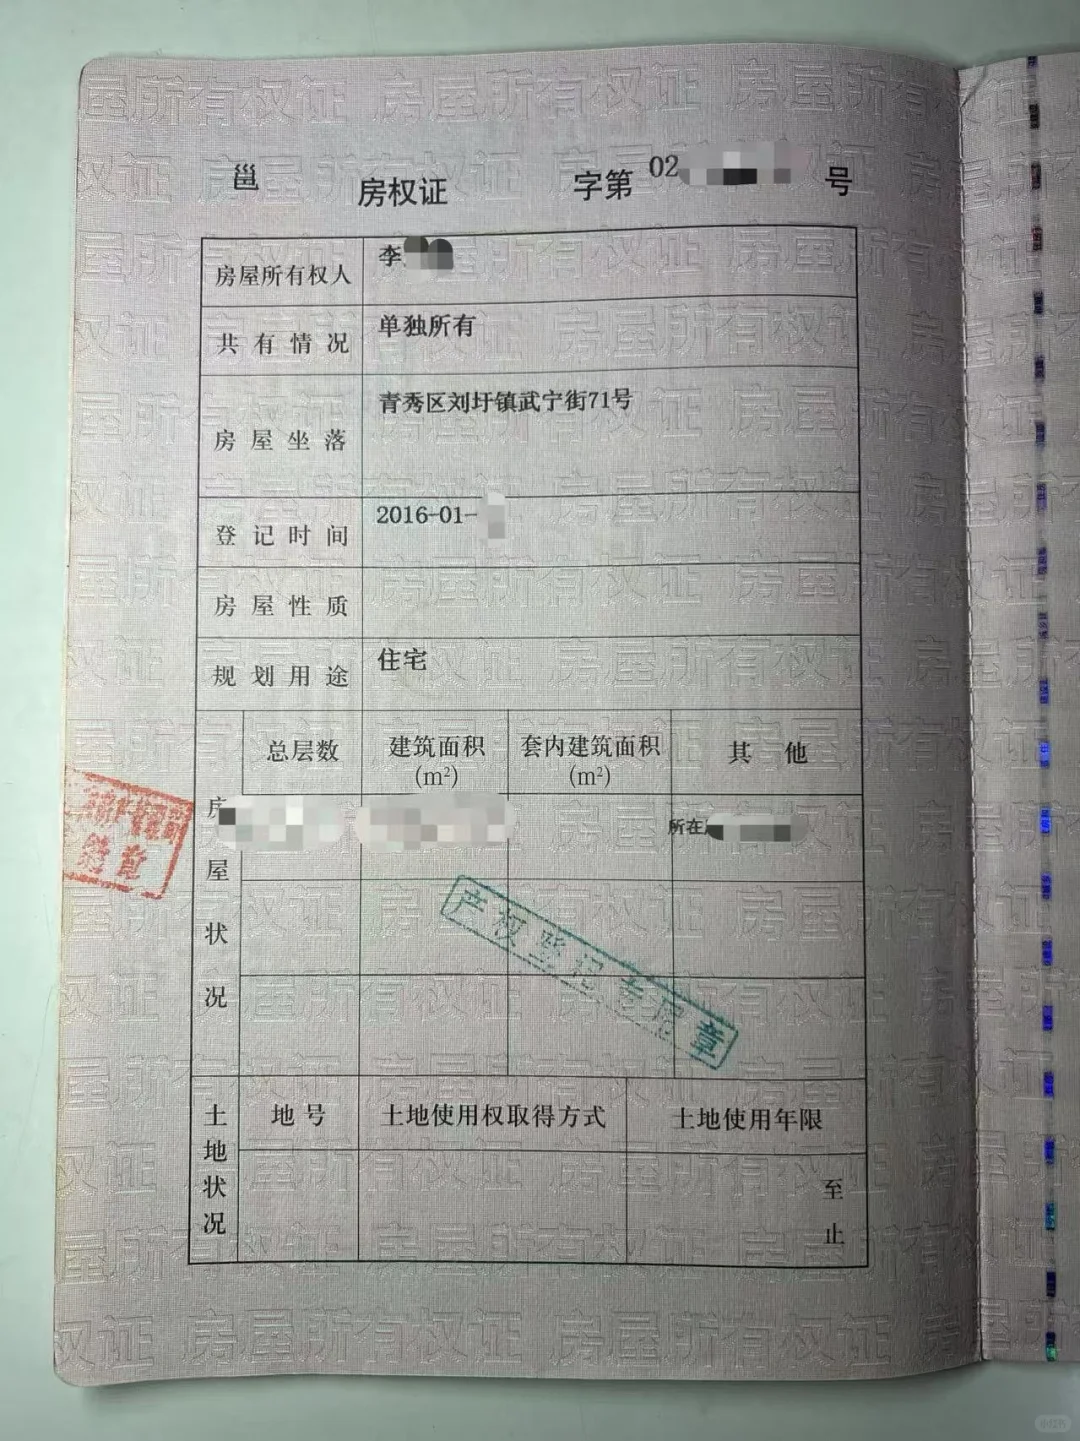 邕 房权证 字第 02 号
房屋所有权人 李
共有情况 单独所有
房屋坐落 青秀区刘圩镇武宁街71号
登记时间 2016-01-
房屋性质
规划用途 住宅
房屋状况
总层数 建筑面积(m²) 套内建筑面积(m²) 其他
所在
产权登记专用章
骑缝章
土地状况
地号 土地使用权取得方式 土地使用年限
至
止
房屋所有权证
小红书